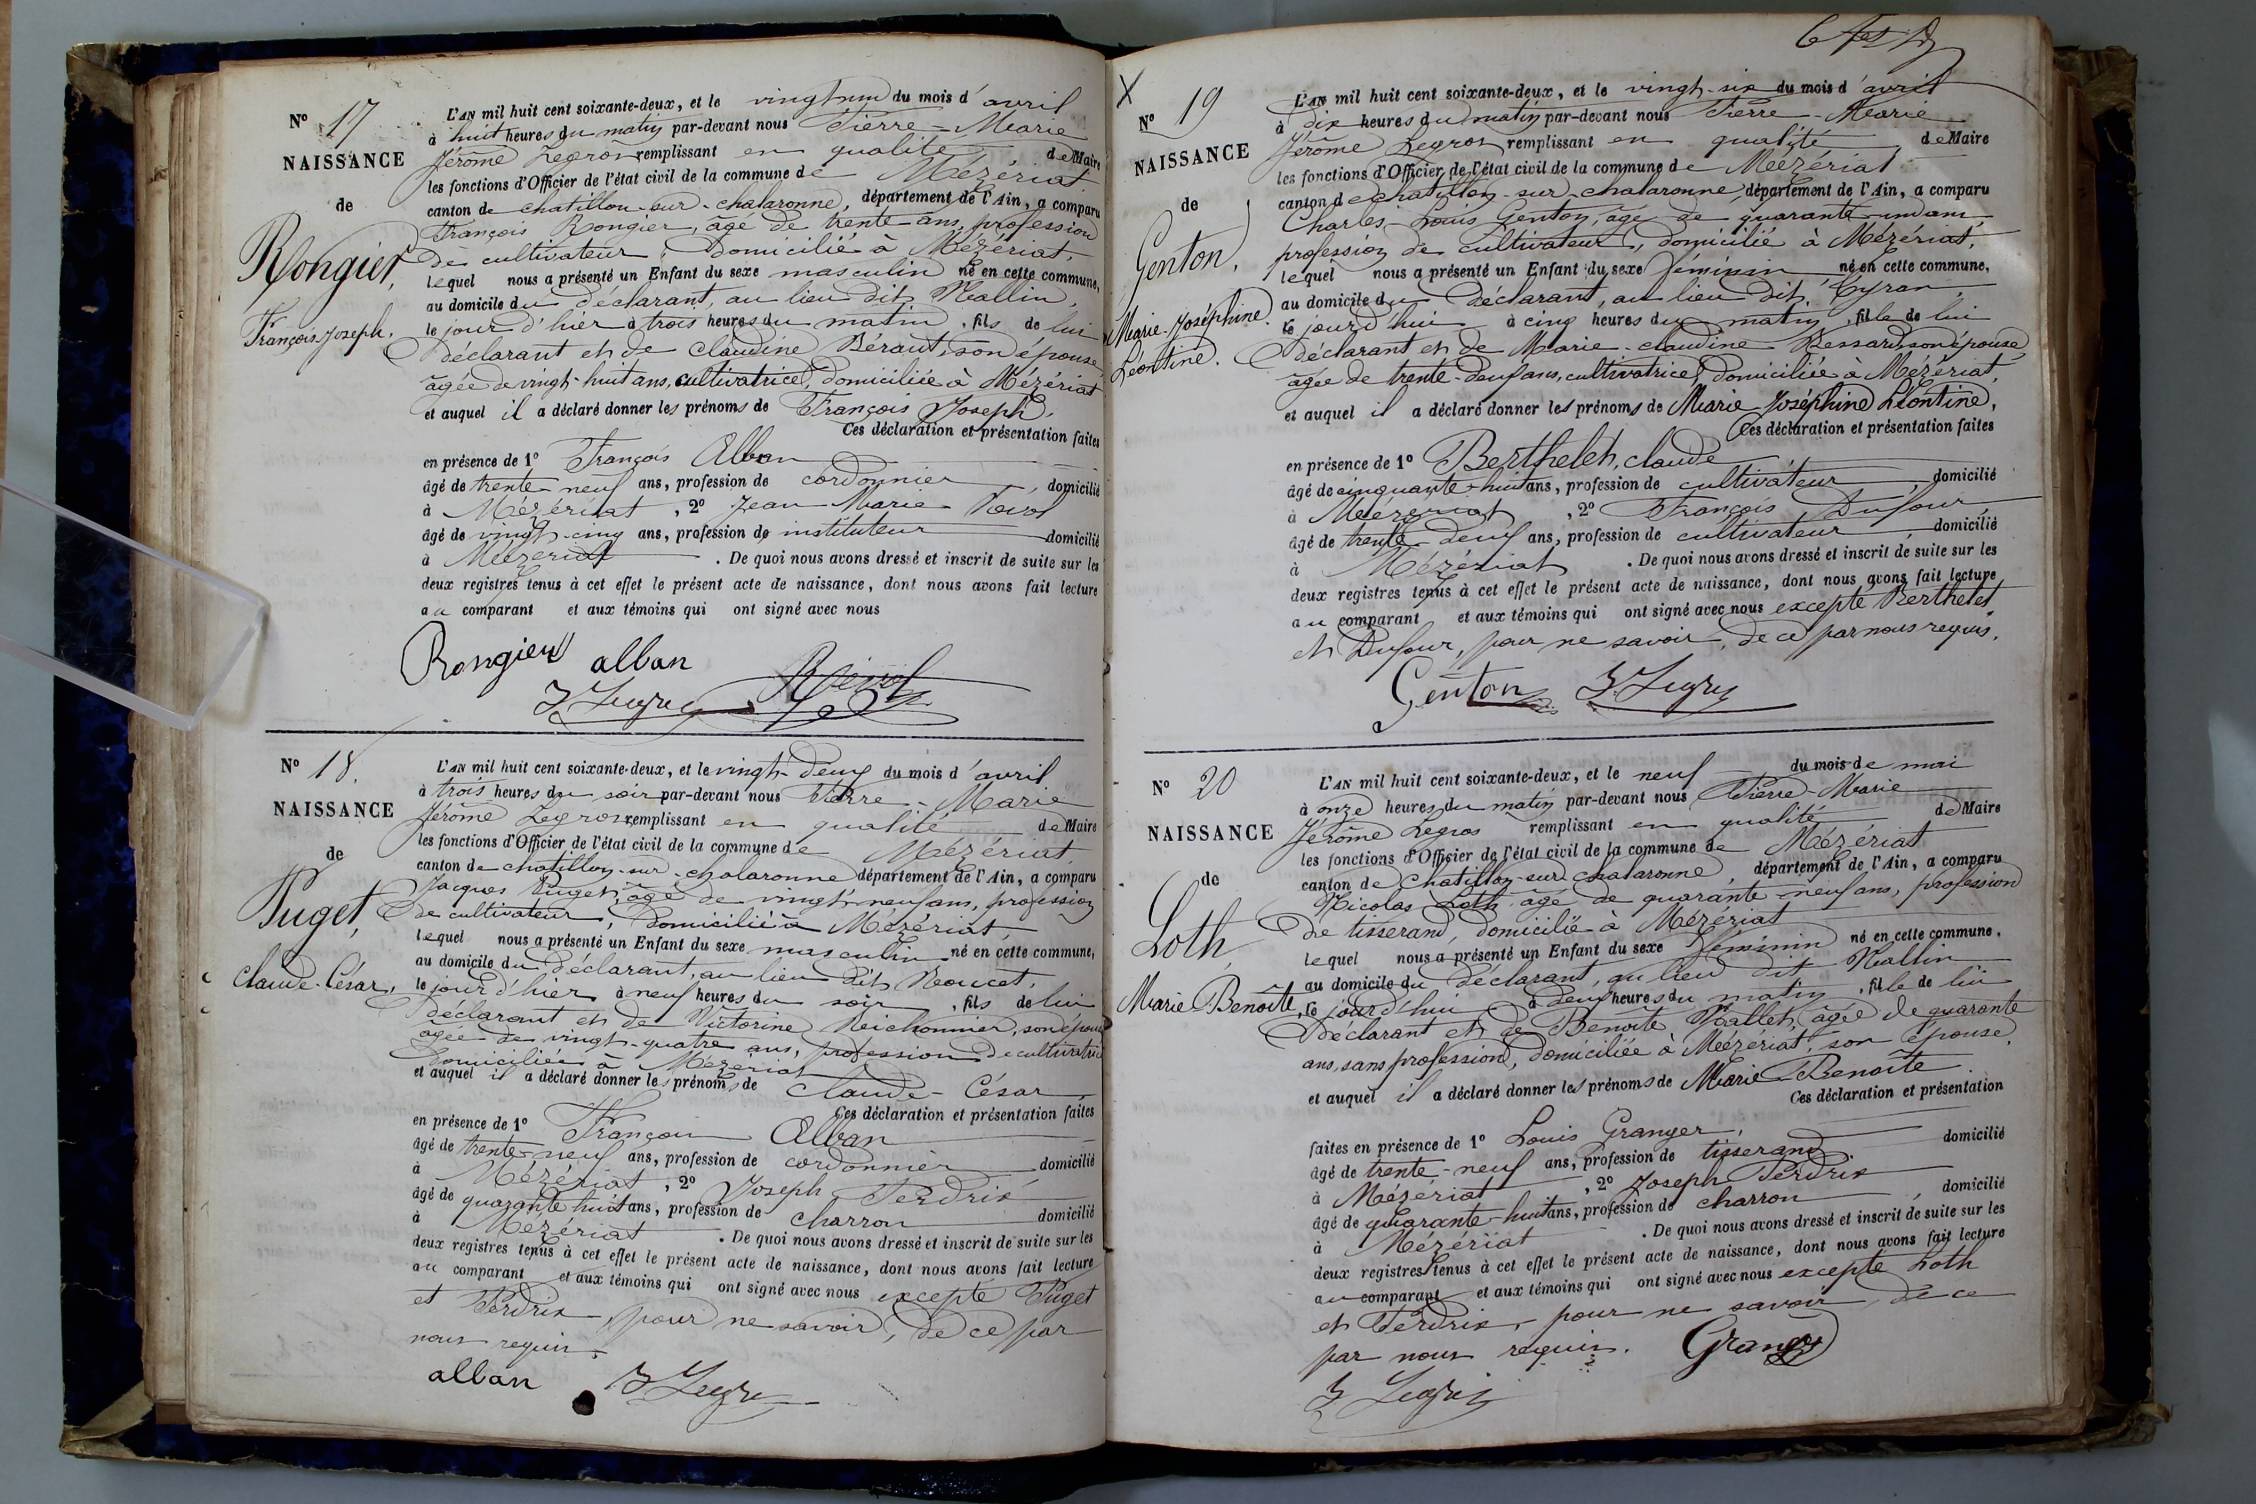 Nº 17
NAISSANCE
de
Rongier,
François Joseph.
L'AN mil huit cent soixante-deux, et le vingt un du mois d'avril
à huit heures du matin par-devant nous Pierre-Marie
Jérôme Legros remplissant en qualité de Maire
les fonctions d'Officier de l'état civil de la commune de Mézériat
canton de chatillon-sur-chalaronne, département de l'Ain, a comparu
François Rongier, âgé de trente ans, profession
de cultivateur, domicilié à Mézériat,
lequel nous a présenté un Enfant du sexe masculin né en cette commune,
au domicile du déclarant, au lieu dit
le jour d'hier à trois heures du matin, fils de lui
déclarant et de claudine Béraut, son épouse
âgée de vingt-huit ans, cultivatrice, domiciliée à Mézériat
et auquel il a déclaré donner les prénoms de François Joseph.
Ces déclaration et présentation faites
en présence de 1º François Alban
âgé de trente-neuf ans, profession de cordonnier domicilié
à Mézériat, 2º Jean Marie
âgé de vingt-cinq ans, profession de instituteur domicilié
à Mézériat. De quoi nous avons dressé et inscrit de suite sur les
deux registres tenus à cet effet le présent acte de naissance, dont nous avons fait lecture
au comparant et aux témoins qui ont signé avec nous
Rongier alban
Nº 18.
NAISSANCE
de
Puget,
Claude-César,
L'AN mil huit cent soixante-deux, et le vingt-deux du mois d'avril
à trois heures du soir par-devant nous Pierre-Marie
Jérôme Legros remplissant en qualité de Maire
les fonctions d'Officier de l'état civil de la commune de Mézériat
canton de chatillon-sur-chalaronne département de l'Ain, a comparu
Jacques Puget, âgé de vingt-neuf ans, profession
de cultivateur, domicilié à Mézériat
lequel nous a présenté un Enfant du sexe masculin né en cette commune,
au domicile du déclarant, au lieu dit
le jour d'hier à neuf heures du soir, fils de lui
déclarant et de Victorine son épouse
âgée de vingt-quatre ans, profession de cultivatrice
domiciliée à Mézériat
et auquel il a déclaré donner les prénoms de claude-César
Ces déclaration et présentation faites
en présence de 1º François Alban
âgé de trente-neuf ans, profession de cordonnier domicilié
à Mézériat, 2º Joseph Perdrix
âgé de quarante huit ans, profession de charron domicilié
à Mézériat. De quoi nous avons dressé et inscrit de suite sur les
deux registres tenus à cet effet le présent acte de naissance, dont nous avons fait lecture
au comparant et aux témoins qui ont signé avec nous excepté Puget
et Perdrix, pour ne savoir, de ce par
nous requis.
alban
X
Nº 19
NAISSANCE
de
Genton,
Marie-Joséphine
Léontine.
L'AN mil huit cent soixante-deux, et le vingt-six du mois d'avril
à dix heures du matin par-devant nous Pierre-Marie
Jérôme Legros remplissant en qualité de Maire
les fonctions d'Officier de l'état civil de la commune de Mézériat
canton de chatillon-sur-chalaronne, département de l'Ain, a comparu
Charles-Louis Genton, âgé de quarante-un ans
profession de cultivateur, domicilié à Mézériat,
lequel nous a présenté un Enfant du sexe féminin né en cette commune,
au domicile du déclarant, au lieu dit,
le jour d'hui à cinq heures du matin, fille de lui
déclarant et de Marie-claudine son épouse
âgée de trente-deux ans, cultivatrice, domiciliée à Mézériat,
et auquel il a déclaré donner les prénoms de Marie Joséphine Léontine,
Ces déclaration et présentation faites
en présence de 1º Berthelet, claude
âgé de cinquante-huit ans, profession de cultivateur domicilié
à Mézériat, 2º François Dufour
âgé de trente-deux ans, profession de cultivateur domicilié
à Mézériat. De quoi nous avons dressé et inscrit de suite sur les
deux registres tenus à cet effet le présent acte de naissance, dont nous avons fait lecture
au comparant et aux témoins qui ont signé avec nous excepté Berthelet
et Dufour, pour ne savoir, de ce par nous requis.
Genton
Nº 20
NAISSANCE
de
Loth
Marie Benoîte,
L'AN mil huit cent soixante-deux, et le neuf du mois de mai
à onze heures du matin par-devant nous Pierre-Marie
Jérôme Legros remplissant en qualité de Maire
les fonctions d'Officier de l'état civil de la commune de Mézériat
canton de Chatillon-sur-chalaronne, département de l'Ain, a comparu
Nicolas Loth âgé de quarante-neuf ans, profession
de tisserand, domicilié à Mézériat
lequel nous a présenté un Enfant du sexe féminin né en cette commune,
au domicile du déclarant, au lieu dit
le jour d'hui à deux heures du matin, fille de lui
déclarant et de Benoîte âgée de quarante
ans, sans profession, domiciliée à Mézériat, son épouse,
et auquel il a déclaré donner les prénoms de Marie-Benoîte
Ces déclaration et présentation
faites en présence de 1º Louis Granger,
âgé de trente-neuf ans, profession de tisserand domicilié
à Mézériat, 2º Joseph Perdrix
âgé de quarante-huit ans, profession de charron domicilié
à Mézériat. De quoi nous avons dressé et inscrit de suite sur les
deux registres tenus à cet effet le présent acte de naissance, dont nous avons fait lecture
au comparant et aux témoins qui ont signé avec nous excepté Loth
et Perdrix, pour ne savoir, de ce
par nous requis.